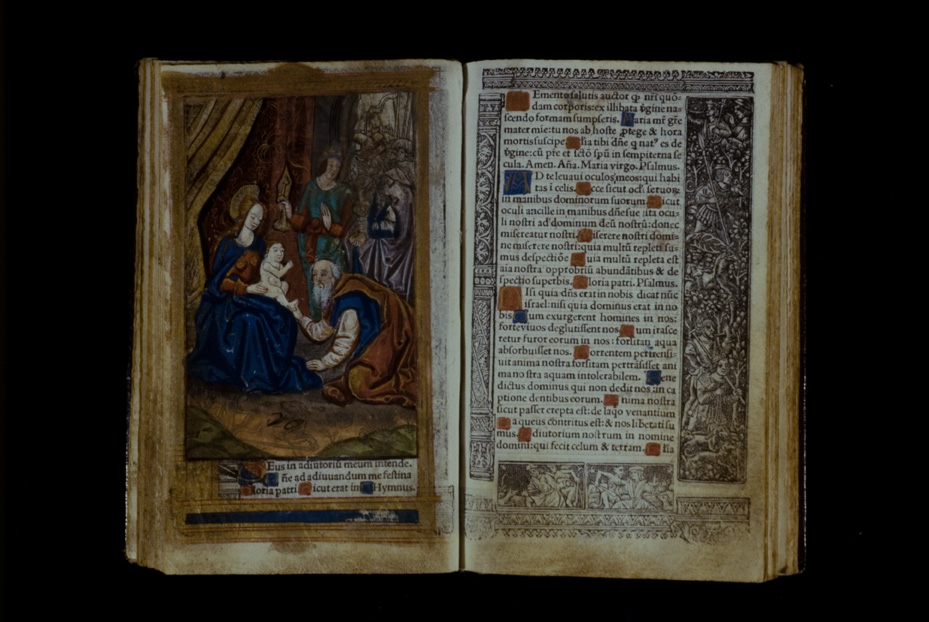 Eus in adiutoriũ meum intende.
ñe ad adiuuandum me festina
loria patri icut erat in Hymnus.
Emento salutis auctor ꝙ nr̃i quõ-
dam corporis: ex illibata v̑gine na-
scendo formam sumpseris. Maria mr̃ gr̃e
mater mie: tu nos ab hoste ꝓtege & hora
mortis suscipe. lia tibi dñe q natꝰ es de
v̑gine: cũ p̃re et sc̃to sp̃u in sempiterna se
cula. Amen. Aña. Maria virgo. Psalmus.
AD te leuaui oculos meos: qui habi
tas ĩ celis. cce sicut ocl̓i seruoꝝ:
in manibus dominorum suorum. icut
oculi ancille in manibus dñe sue: ita ocu-
li nostri ad dominum deũ nostrũ: donec
misereatur nostri. iserere nostri domi-
ne miserere nostri: quia multũ repleti su-
mus despectiõe uia multũ repleta est
aĩa nostra opprobriũ abundãtibus & de
spectio superbis. loria patri. Psalmus.
Isi quia dñs erat in nobis dicat nũc
israel: nisi quia dominus erat in no
bis. um exurgerent homines in nos:
forte viuos deglutissent nos. um irasce
retur furor eorum in nos: forsitan aqua
absorbuisset nos. orrentem pertransi-
uit anima nostra forsitam pertrãsisset ani
ma nostra aquam intolerabilem. ene
dictus dominus qui non dedit nos in ca
ptione dentibus eorum. nima nostra
sicut passer erepta est: de laqo venantium
aqueus contritus est: & nos liberati su
mus. diutorium nostrum in nomine
domini: qui fecit celum & terram. lia